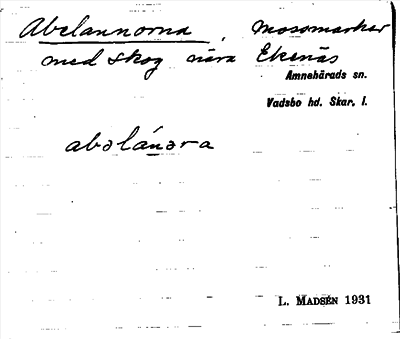 Abelannorna, Mossmarker
med skog nära Ekenäs
Amnehärads sn.
Vadsbo hd. Skar. l.
abəlánəra
L. MADSÉN 1931